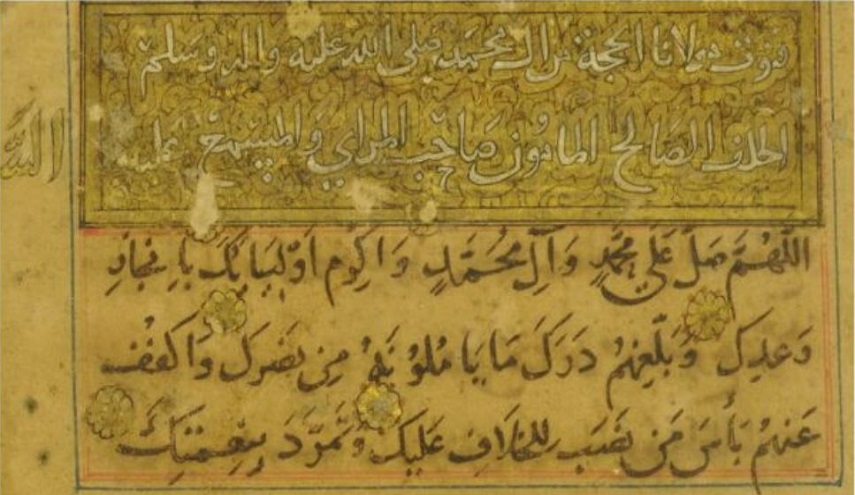 قنوت مولانا الحجة من آل محمد صلى الله عليه واله وسلم
الخلف الصالح المأمون صاحب المراي والمسمع عليه
اللَّهُمَّ صَلِّ عَلَى مُحَمَّدٍ وَآلِ مُحَمَّدٍ وَاكْرِم اَوْلِيَائِكَ بِاِنْجَازِ
وَعْدِكَ وَبَلِّغْهُمْ دَرَكَ مَا يَأْمُلُونَهُ مِنْ نَصْرِكَ وَاكْفُفْ
عَنْهُمْ بَأْسَ مَنْ نَصَبَ لِلْخِلَافِ عَلَيْكَ وَتَمَرَّدَ بِنِعْمَتِكَ